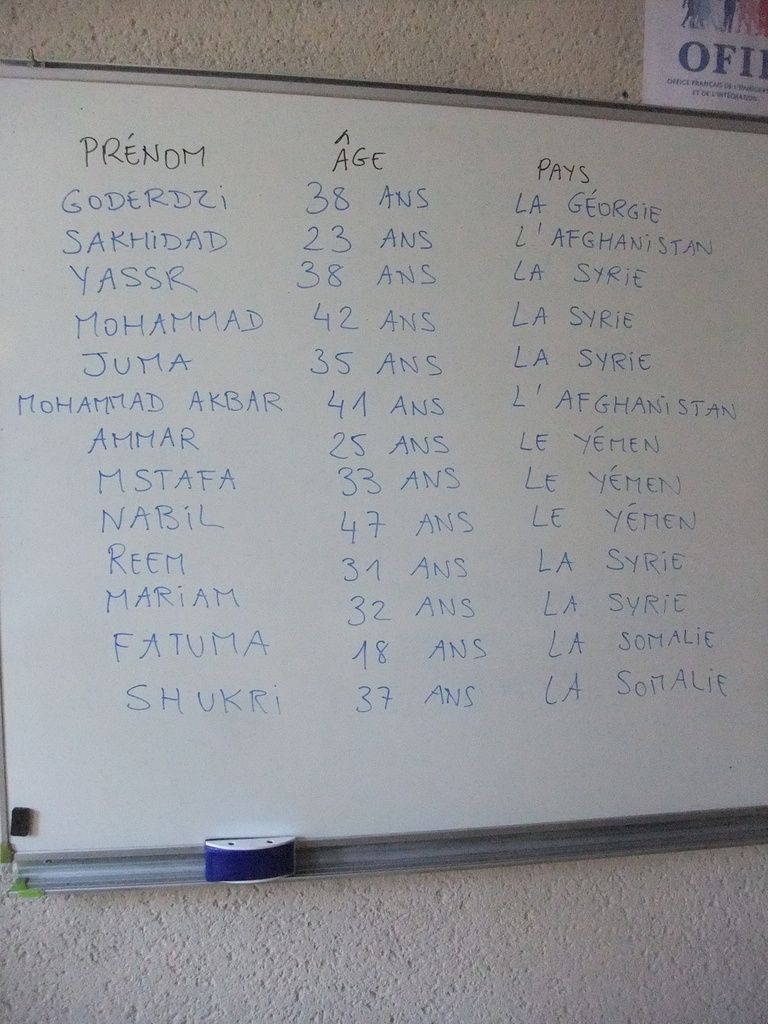 OFII
OFFICE FRANÇAIS DE L'IMMIGRA
ET DE L'INTÉGRATION
PRÉNOM ÂGE PAYS
GODERDZI 38 ANS LA GÉORGIE
SAKHIDAD 23 ANS L'AFGHANISTAN
YASSR 38 ANS LA SYRIE
MOHAMMAD 42 ANS LA SYRIE
JUMA 35 ANS LA SYRIE
MOHAMMAD AKBAR 41 ANS L'AFGHANISTAN
AMMAR 25 ANS LE YÉMEN
MSTAFA 33 ANS LE YÉMEN
NABIL 47 ANS LE YÉMEN
REEM 31 ANS LA SYRIE
MARIAM 32 ANS LA SYRIE
FATUMA 18 ANS LA SOMALIE
SHUKRI 37 ANS LA SOMALIE